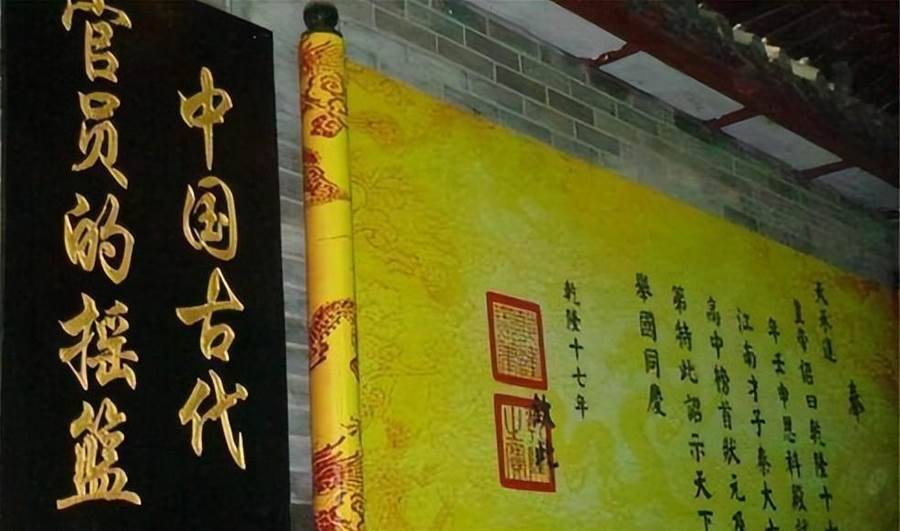 中国古代
官员的摇篮
奉
天承運
皇帝詔曰乾隆十
年壬申恩科殿
江南才子秦大
高中榜首狀元
第特此詔示天下
舉國同慶
乾隆十七年
欽此